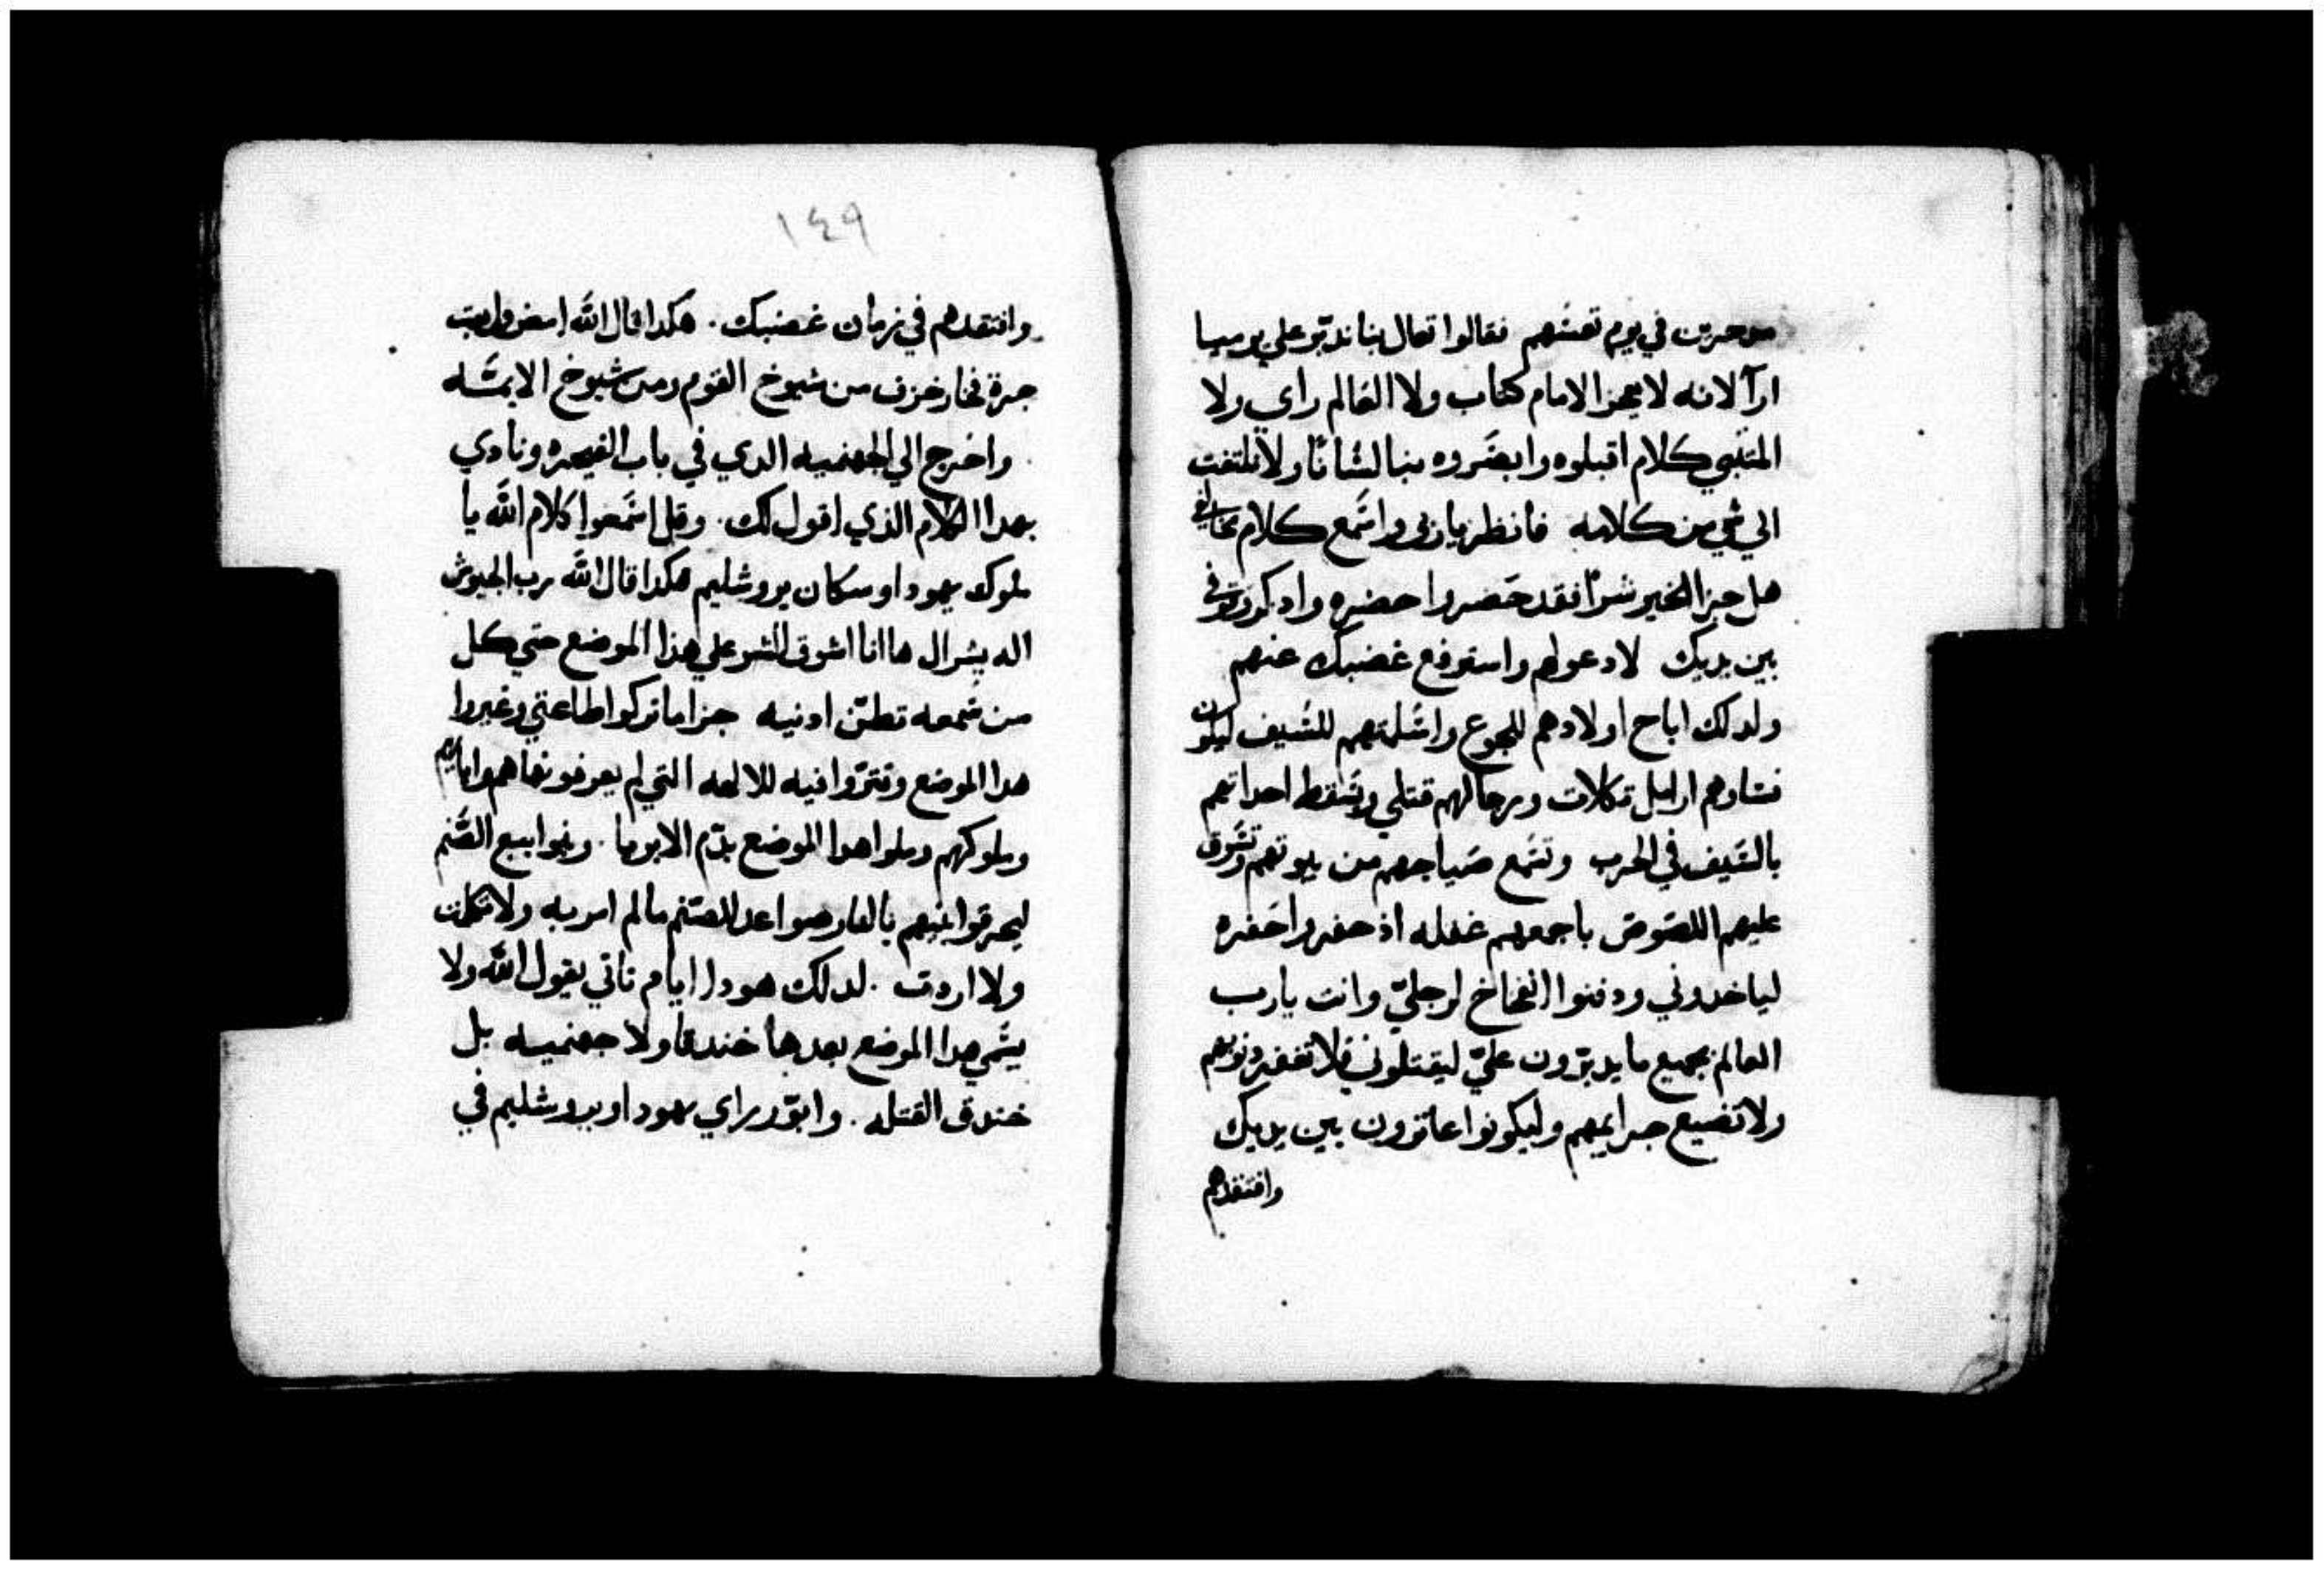 موخرين في يوم تعسهم فقالوا تعال بنا ندبر علي يرميا
ارآ لانه لا يعجز الامام كتاب ولا العالم راي ولا
المتنبي كلام اقبلوه وابصروه بنا لسانا ولا نلتفت
الي شي من كلامه فانظر يا ربي واسمع كلام مخالفي
هل جزا الخير شرا فقد حضروا حضره وادكر وقوفي
بين يديك لادعولهم واستوفع غضبك عنهم
ولدلك اباح اولادهم للجوع واسلمتهم للسيف ليكون
نساوهم ارامل تكلات ورجالهم قتلي ويسقط احداتهم
بالسيف في الحرب وتسمع صياحهم من بيوتهم وتسوق
عليهم اللصوص باجمعهم غفله اذ حفروا حفره
لياخدوني ودفنوا الفخاخ لرجليّ وانت يا رب
العالم بجميع ما يدبرون عليّ ليقتلوني فلا تغفر دنوبهم
ولا تضيع جرايمهم وليكونوا عاترون بين يديك
وافتقدهم
١٤٩
وافتقدهم في زمان غضبك. هكدا قال الله امض وابت
جرة فخار خزف من شيوخ القوم ومن شيوخ الايمه
واخرج الي الجهنميه الدي في باب القيصره ونادي
بهدا الكلام الذي اقول لك. وقل اسمعوا كلام الله يا
ملوك يهودا وسكان يروشليم هكدا قال الله رب الجيوش
اله يسرال ها انا اسوق الشر علي هذا الموضع حتي كل
من سمعه تطن ادنيه جزا ما تركوا طاعتي وغيروا
هدا الموضع وقتروا فيه للالهه التي لم يعرفونها هم واباوهم
وملوكهم وملوا هدا الموضع بدم الابريا. وبنوا بيع الصنم
ليحرقوا بنيهم بالنار صواعد للصنم ما لم امر به ولا تكلمت
ولا اردت. لدلك هودا ايام تاتي يقول الله ولا
يسمي هدا الموضع بعدها خندقا ولا جهنميه بل
خندق القتله. وابور راي يهودا ويروشليم في